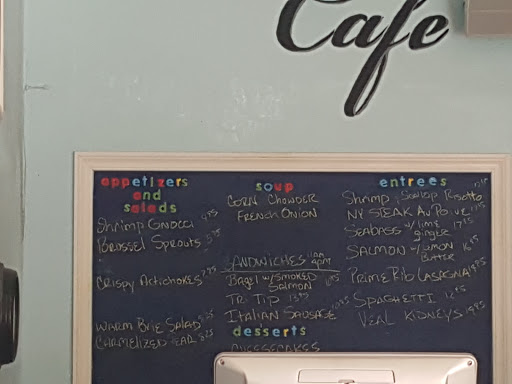 Cafe
appetizers
and
salads
Shrimp Gnocci
Brussel Sprouts
Crispy Artichokes
Warm Brie Salad
Carmelized Pear
soup
Corn Chowder
French Onion
Sandwiches
Bagel w/Smoked
Salmon
Tri Tip
Italian Sausage
desserts
Cheesecakes
entrees
Shrimp Scallop Risotto
NY Steak Au Poivre
Seabass w/ lime
ginger
Salmon w/ Lemon
Butter
Prime Rib Lasagna
Spaghetti
Veal Kidneys